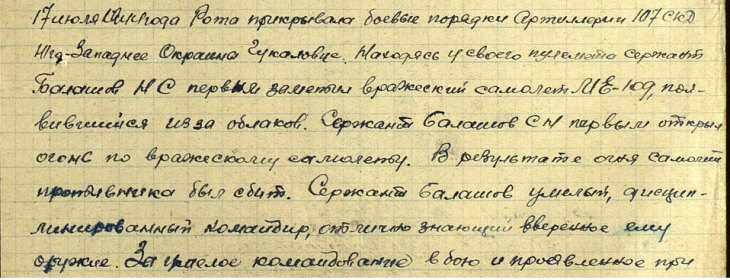 17 июля 1944 года Рота прикрывала боевые порядки Артиллерии 107 СКД
Юго-Западнее Окраина Гукаловце. Находясь у своего пулемета сержант
Балашов НС первым заметил вражеский самолет МЕ-109, поя-
вившийся из за облаков. Сержант Балашов СН первым открыл
огонь по вражескому самолету. В результате огня самолет
противника был сбит. Сержант Балашов умелый, дисцип-
линированный командир, отлично знающий вверенное ему
оружие. За умелое командование в бою и проявленное при